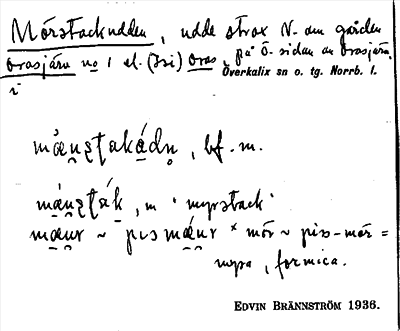 Mörstackudden, udde strax N. om gården
Orasjärv no 1 el. (Isi) Oras, på Ö. sidan av Orasjärv,
i Överkalix sn o. tg. Norrb. l.
bf. m.
m. 'myrstack'
~ mör ~ pis-mör =
myra, formica.
EDVIN BRÄNNSTRÖM 1936.